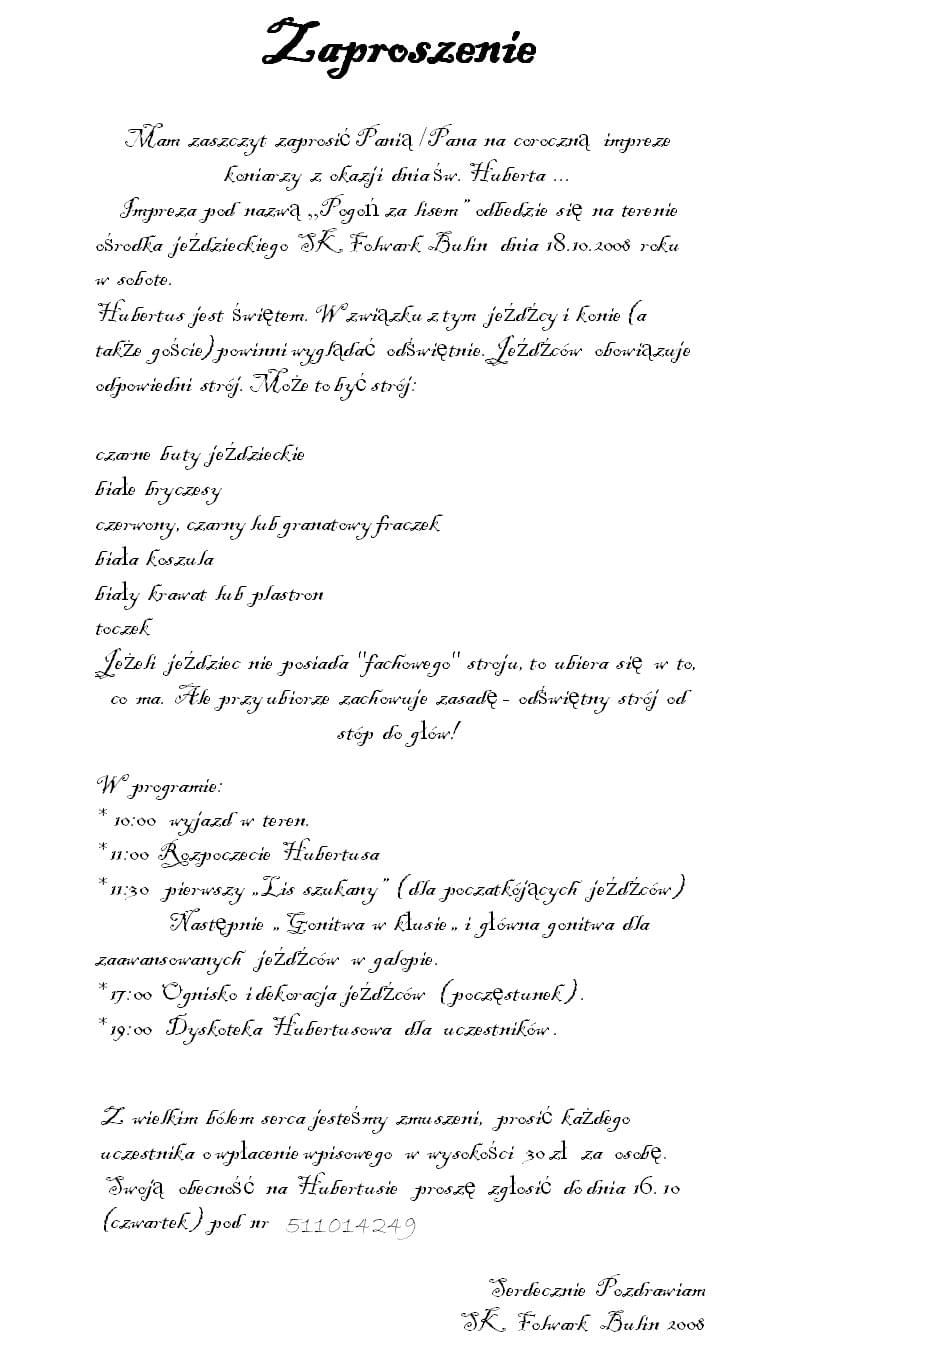 Zaproszenie
Mam zaszczyt zaprosić Panią /Pana na coroczną impreze
koniarzy z okazji dnia św. Huberta ...
Impreza pod nazwą ,,Pogoń za lisem" odbedzie się na terenie
ośrodka jeździeckiego SK Folwark Bulin dnia 18.10.2008 roku
w sobote.
Hubertus jest świętem. W związku z tym jeźdźcy i konie (a
także goście) powinni wyglądać odświętnie. Jeźdźców obowiązuje
odpowiedni strój. Może to być strój:
czarne buty jeździeckie
białe bryczesy
czerwony, czarny lub granatowy fraczek
biała koszula
biały krawat lub plastron
toczek
Jeżeli jeździec nie posiada "fachowego" stroju, to ubiera się w to,
co ma. Ale przy ubiorze zachowuje zasadę - odświętny strój od
stóp do głów!
W programie:
* 10:00 wyjazd w teren.
* 11:00 Rozpoczecie Hubertusa
* 11:30 pierwszy „Lis szukany" (dla poczatkójących jeźdźców)
Następnie „ Gonitwa w kłusie „ i główna gonitwa dla
zaawansowanych jeźdźców w galopie.
* 17:00 Ognisko i dekoracja jeźdźców (poczęstunek).
* 19:00 Dyskoteka Hubertusowa dla uczestników.
Z wielkim bólem serca jesteśmy zmuszeni, prosić każdego
uczestnika o wpłacenie wpisowego w wysokości 30 zł za osobę.
Swoją obecność na Hubertusie proszę zgłosić do dnia 16. 10
(czwartek) pod nr 511014249
Serdecznie Pozdrawiam
SK Folwark Bulin 2008